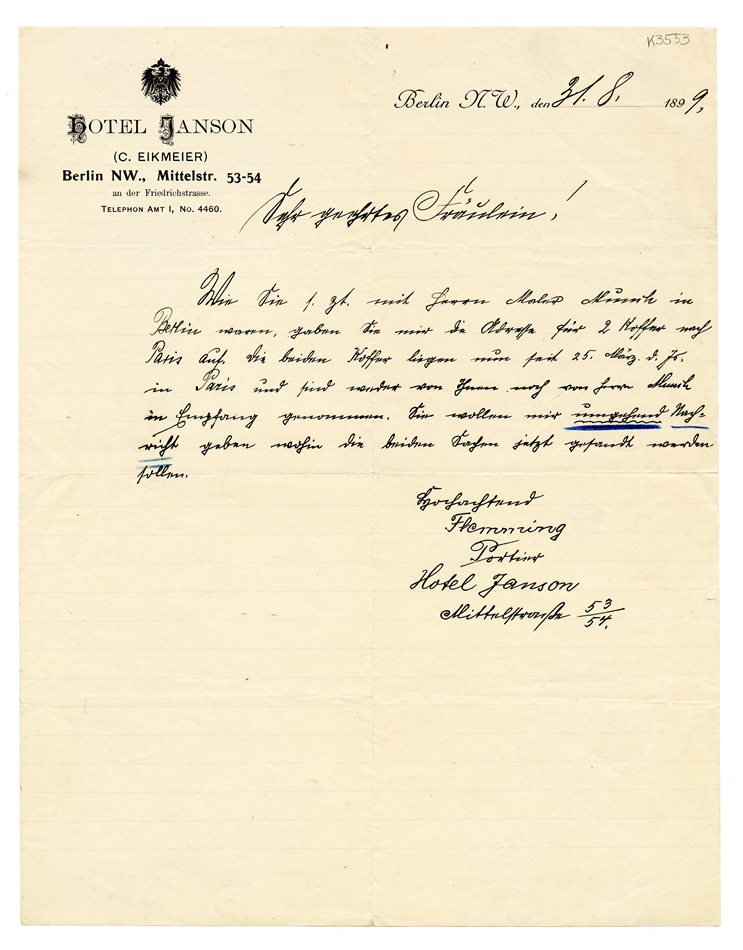 K3553
HOTEL JANSON
(C. EIKMEIER)
Berlin NW., Mittelstr. 53-54
an der Friedrichstrasse.
TELEPHON AMT I, No. 4460.
Berlin N.W., den 31. 8. 1899,
Sehr geehrtes Fräulein!
Wie Sie s. Zt. mit Herrn Maler Munch in
Berlin waren, gaben Sie mir die Adresse für 2 Koffer nach
Paris auf. Die beiden Koffer liegen nun seit 25. März d. Js.
in Paris und sind weder von Ihnen noch von Herrn Munch
in Empfang genommen. Sie wollen mir umgehend Nach-
richt geben wohin die beiden Sachen jetzt gesandt werden
sollen.
Hochachtend
Flemming
Portier
Hotel Janson
Mittelstraße 53/54.